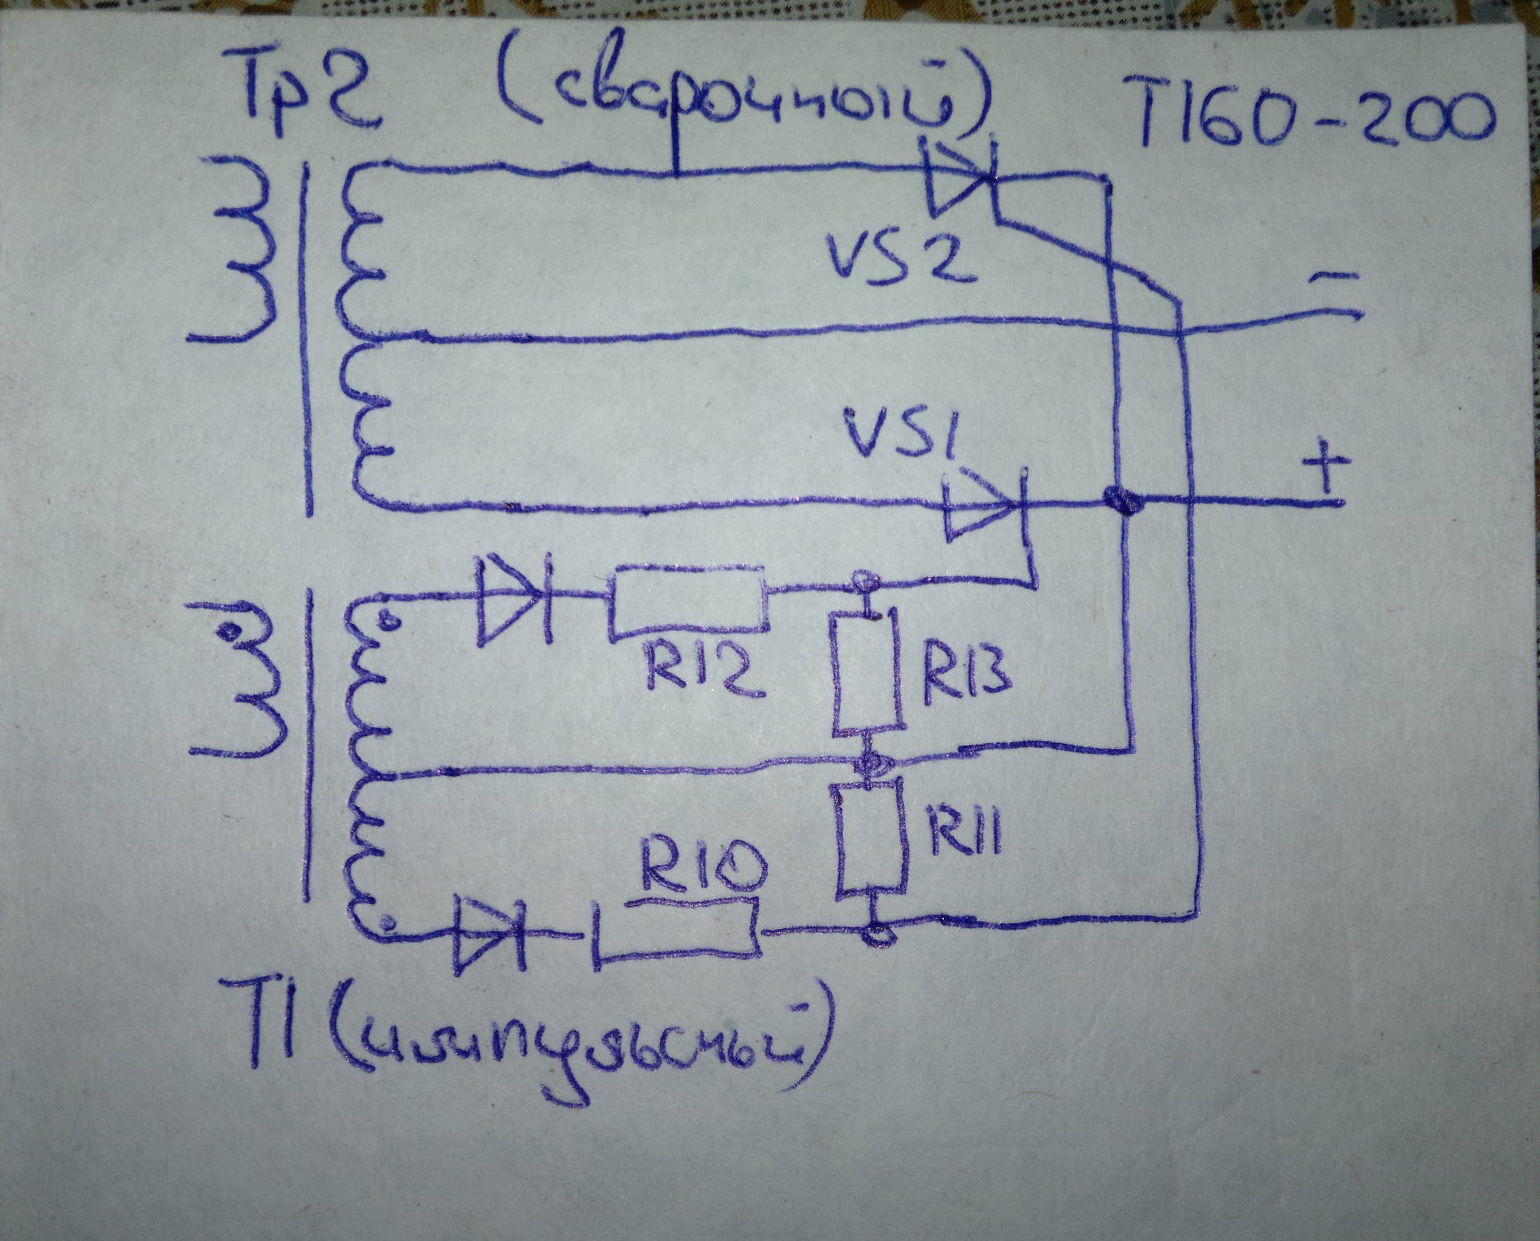 Тр2 (сварочный) Т160-200
VS2
−
VS1
+
R12
R13
R10
R11
Т1 (импульсный)